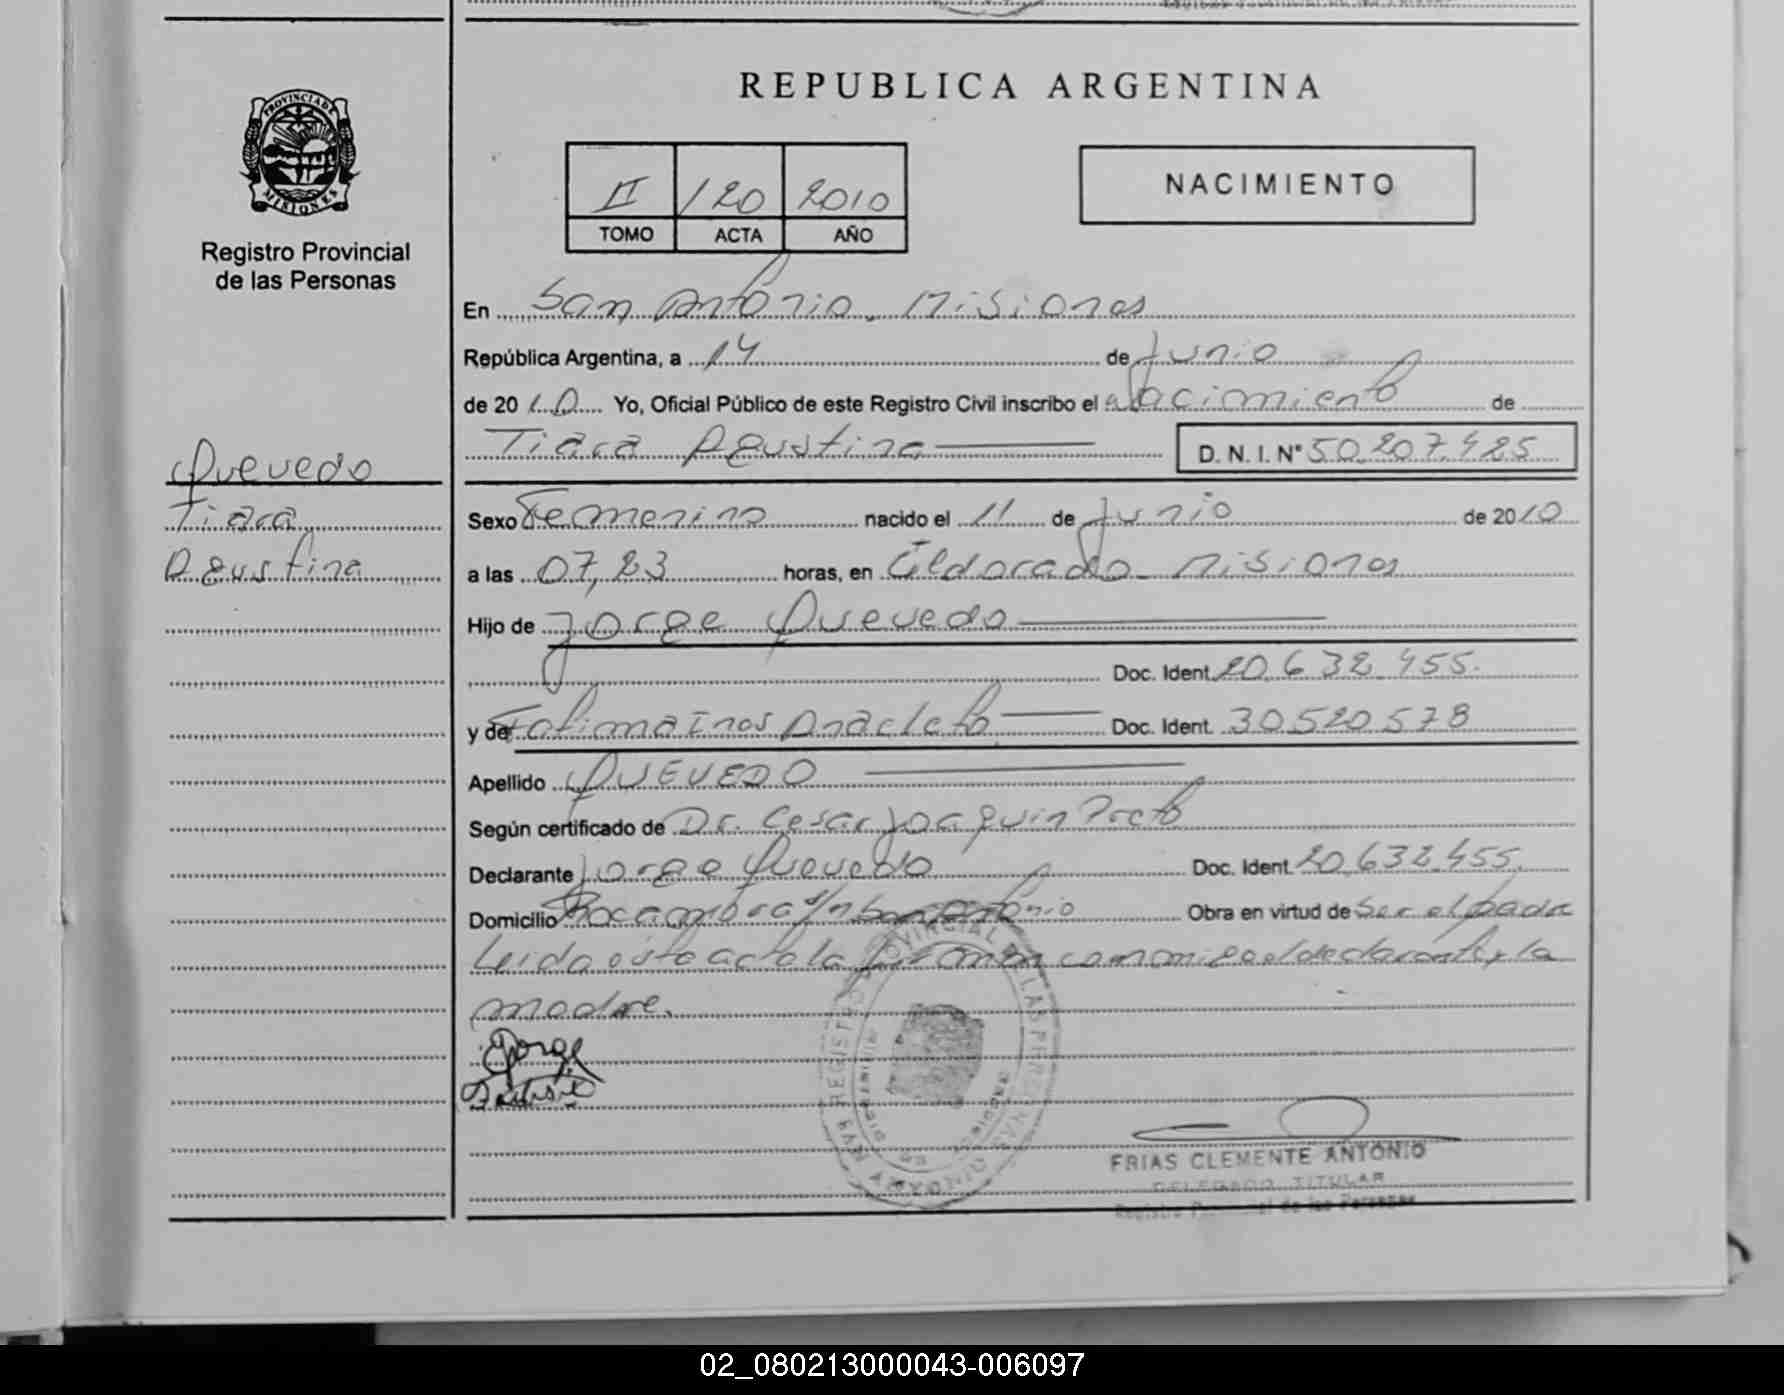 REPUBLICA ARGENTINA
PROVINCIA DE
MISIONES
Registro Provincial
de las Personas
II 120 2010
TOMO ACTA AÑO
NACIMIENTO
En San Antonio. Misiones
República Argentina, a 14 de Junio
de 2010 Yo, Oficial Público de este Registro Civil inscribo el Nacimiento de
Tiara Agustina D. N. I. Nº 50.207.425
Quevedo
Tiara
Agustina
Sexo Femenino nacido el 11 de Junio de 2010
a las 07,23 horas, en Eldorado - Misiones
Hijo de Jorge Quevedo
Doc. Ident. 20.632.455.
y de Fatima Ines Anacleto Doc. Ident. 30520578
Apellido QUEVEDO
Según certificado de Dr. Cesar Joaquin
Declarante Jorge Quevedo Doc. Ident. 20.632.455.
Domicilio s/n San Antonio Obra en virtud de Ser el padre
Leida esta acta la firman conmigo el declarante y la
madre.
Jorge
FRIAS CLEMENTE ANTONIO
DELEGADO TITULAR
Registro Provincial de las Personas
02_080213000043-006097